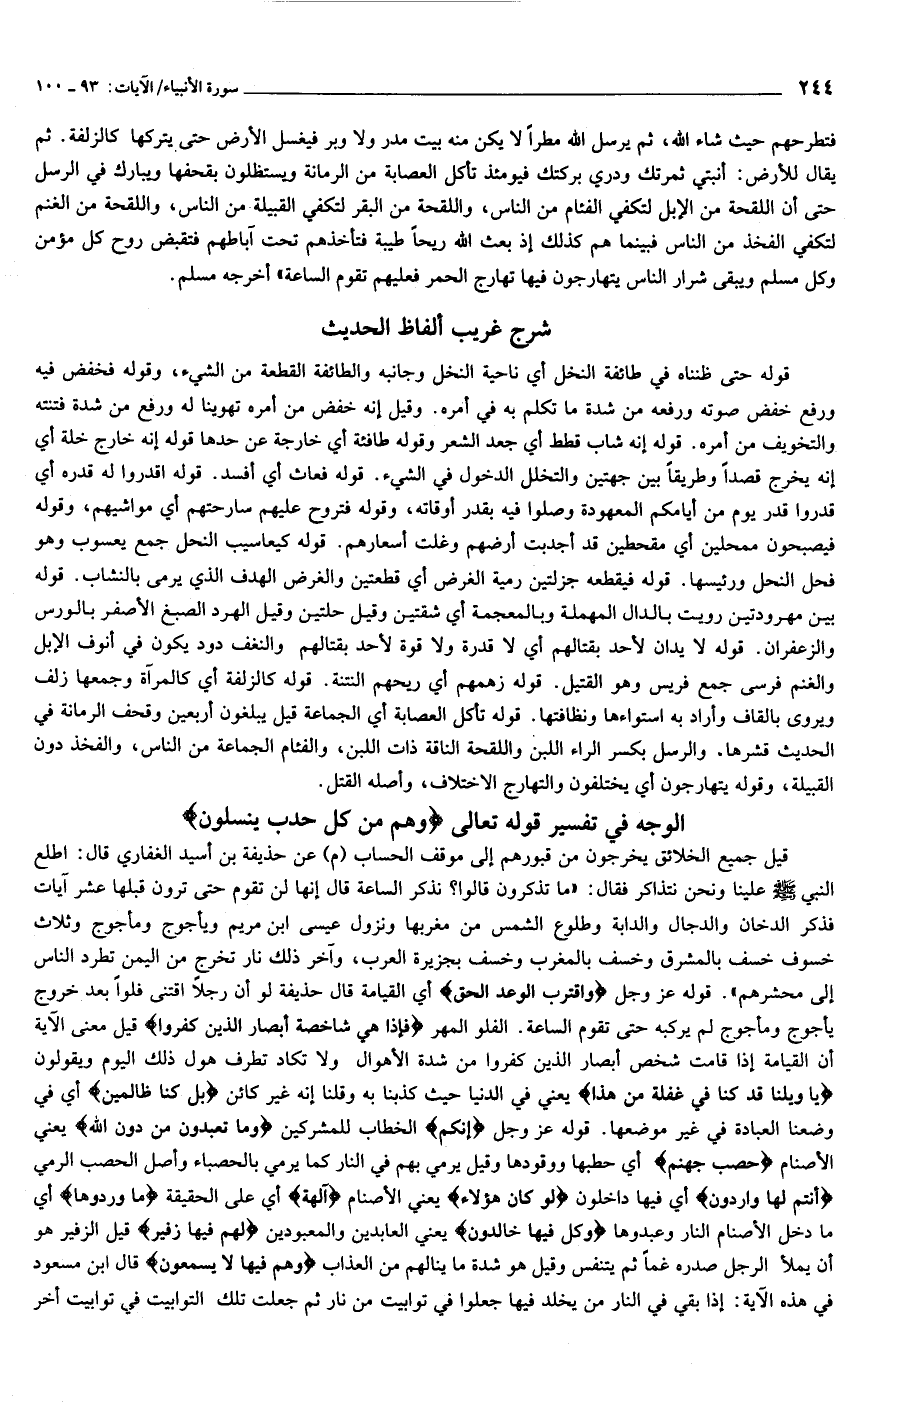 ٢٤٤ سورة الأنبياء/ الآيات: ٩٣ ـ ١٠٠
فتطرحهم حيث شاء الله، ثم يرسل الله مطراً لا يكن منه بيت مدر ولا وبر فيغسل الأرض حتى يتركها كالزلفة. ثم
يقال للأرض: أنبتي ثمرتك ودري بركتك فيومئذ تأكل العصابة من الرمانة ويستظلون بقحفها ويبارك في الرسل
حتى أن اللقحة من الإبل لتكفي الفئام من الناس، واللقحة من البقر لتكفي القبيلة من الناس، واللقحة من الغنم
لتكفي الفخذ من الناس فبينما هم كذلك إذ بعث الله ريحاً طيبة فتأخذهم تحت آباطهم فتقبض روح كل مؤمن
وكل مسلم ويبقى شرار الناس يتهارجون فيها تهارج الحمر فعليهم تقوم الساعة» أخرجه مسلم.
شرح غريب ألفاظ الحديث
قوله حتى ظنناه في طائفة النخل أي ناحية النخل وجانبه والطائفة القطعة من الشيء، وقوله فخفض فيه
ورفع خفض صوته ورفعه من شدة ما تكلم به في أمره. وقيل إنه خفض من أمره تهوينا له ورفع من شدة فتنته
والتخويف من أمره. قوله إنه شاب قطط أي جعد الشعر وقوله طافئة أي خارجة عن حدها قوله إنه خارج خلة أي
إنه يخرج قصداً وطريقاً بين جهتين والتخلل الدخول في الشيء. قوله فعاث أي أفسد. قوله اقدروا له قدره أي
قدروا قدر يوم من أيامكم المعهودة وصلوا فيه بقدر أوقاته، وقوله فتروح عليهم سارحتهم أي مواشيهم، وقوله
فيصبحون ممحلين أي مقحطين قد أجدبت أرضهم وغلت أسعارهم. قوله كيعاسيب النحل جمع يعسوب وهو
فحل النحل ورئيسها. قوله فيقطعه جزلتين رمية الغرض أي قطعتين والغرض الهدف الذي يرمى بالنشاب. قوله
بين مهرودتين رويت بالدال المهملة وبالمعجمة أي شقتين وقيل حلتين وقيل الهرد الصبغ الأصفر بالورس
والزعفران. قوله لا يدان لأحد بقتالهم أي لا قدرة ولا قوة لأحد بقتالهم والنغف دود يكون في أنوف الإبل
والغنم فرسى جمع فريس وهو القتيل. قوله زهمهم أي ريحهم النتنة. قوله كالزلفة أي كالمرآة وجمعها زلف
ويروى بالقاف وأراد به استواءها ونظافتها. قوله تأكل العصابة أي الجماعة قيل يبلغون أربعين وقحف الرمانة في
الحديث قشرها. والرسل بكسر الراء اللبن واللقحة الناقة ذات اللبن، والفئام الجماعة من الناس، والفخذ دون
القبيلة، وقوله يتهارجون أي يختلفون والتهارج الاختلاف، وأصله القتل.
الوجه في تفسير قوله تعالى ﴿وهم من كل حدب ينسلون﴾
قيل جميع الخلائق يخرجون من قبورهم إلى موقف الحساب (م) عن حذيفة بن أسيد الغفاري قال: اطلع
النبي ﷺ علينا ونحن نتذاكر فقال: «ما تذكرون قالوا؟ نذكر الساعة قال إنها لن تقوم حتى ترون قبلها عشر آيات
فذكر الدخان والدجال والدابة وطلوع الشمس من مغربها ونزول عيسى ابن مريم ويأجوج ومأجوج وثلاث
خسوف خسف بالمشرق وخسف بالمغرب وخسف بجزيرة العرب، وآخر ذلك نار تخرج من اليمن تطرد الناس
إلى محشرهم». قوله عز وجل ﴿واقترب الوعد الحق﴾ أي القيامة قال حذيفة لو أن رجلاً اقتنى فلواً بعد خروج
يأجوج ومأجوج لم يركبه حتى تقوم الساعة. الفلو المهر ﴿فإذا هي شاخصة أبصار الذين كفروا﴾ قيل معنى الآية
أن القيامة إذا قامت شخص أبصار الذين كفروا من شدة الأهوال ولا تكاد تطرف هول ذلك اليوم ويقولون
﴿يا ويلنا قد كنا في غفلة من هذا﴾ يعني في الدنيا حيث كذبنا به وقلنا إنه غير كائن ﴿بل كنا ظالمين﴾ أي في
وضعنا العبادة في غير موضعها. قوله عز وجل ﴿إنكم﴾ الخطاب للمشركين ﴿وما تعبدون من دون الله﴾ يعني
الأصنام ﴿حصب جهنم﴾ أي حطبها ووقودها وقيل يرمي بهم في النار كما يرمي بالحصباء وأصل الحصب الرمي
﴿أنتم لها واردون﴾ أي فيها داخلون ﴿لو كان هؤلاء﴾ يعني الأصنام ﴿آلهة﴾ أي على الحقيقة ﴿ما وردوها﴾ أي
ما دخل الأصنام النار وعبدوها ﴿وكل فيها خالدون﴾ يعني العابدين والمعبودين ﴿لهم فيها زفير﴾ قيل الزفير هو
أن يملأ الرجل صدره غماً ثم يتنفس وقيل هو شدة ما ينالهم من العذاب ﴿وهم فيها لا يسمعون﴾ قال ابن مسعود
في هذه الآية: إذا بقي في النار من يخلد فيها جعلوا في توابيت من نار ثم جعلت تلك التوابيت في توابيت أخر